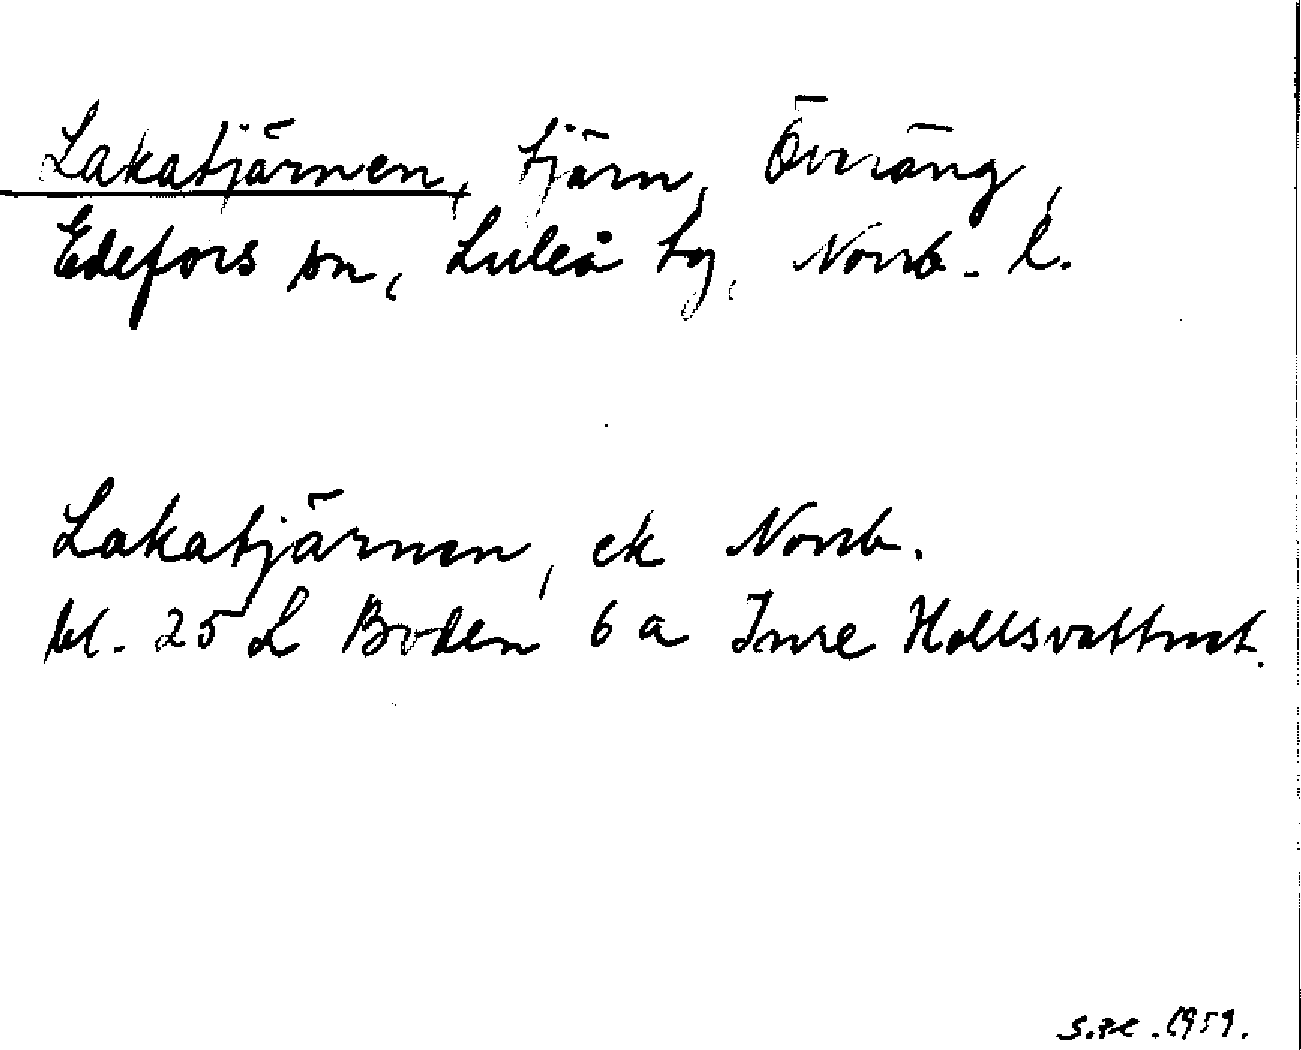 Lakatjärnen, tjärn, Överäng,
Edefors sn, Luleå tg, Norrb. l.
Lakatjärnen, ek Norrb.
bl. 25 L Boden 6 a Inre Hollsvattnet.
1959.